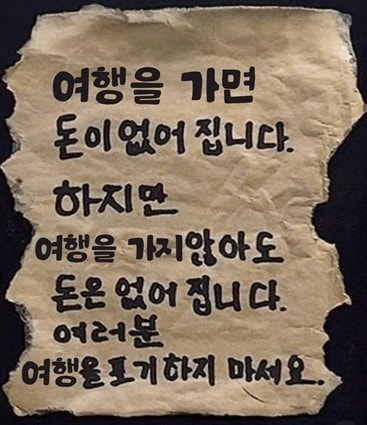 여행을 가면
돈이 없어 집니다.
하지만
여행을 가지않아도
돈은 없어 집니다.
여러분
여행을 포기하지 마세요.